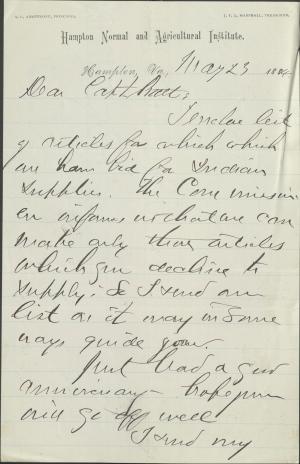 S. C. ARMSTRONG, PRINCIPAL. J. F. B. MARSHALL, TREASURER.
Hampton Normal and Agricultural Institute.
Hampton, Va. May 23 188
Dear Capt Pratt,
I enclose list
of articles for which which
we have bid for Indian
Supplies. The Commission
er informs us that we can
make only those articles
which you decline to
supply: So I send our
list as it may in some
ways guide you.
Just had a good
anniversary – hope yours
will go off well
I send my